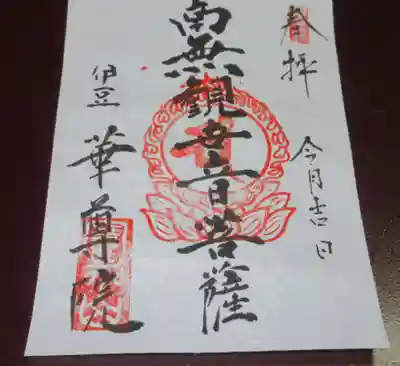 奉拝
今月吉日
南無觀世音菩薩
伊豆
華尊院